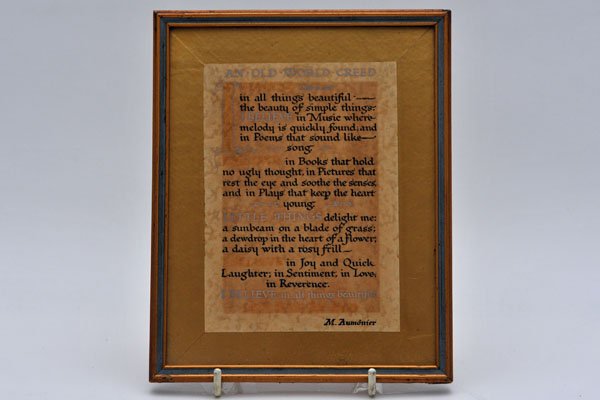 AN OLD WORLD CREED
in all things beautiful —
the beauty of simple things:
I BELIEVE in Music where
melody is quickly found, and
in Poems that sound like —
song
in Books that hold
no ugly thought, in Pictures that
rest the eye and soothe the senses,
and in Plays that keep the heart
young.
LITTLE THINGS delight me:
a sunbeam on a blade of grass;
a dewdrop in the heart of a flower;
a daisy with a rosy frill —
in Joy and Quick
Laughter; in Sentiment, in Love,
in Reverence.
I BELIEVE in all things beautiful
M. Aumônier